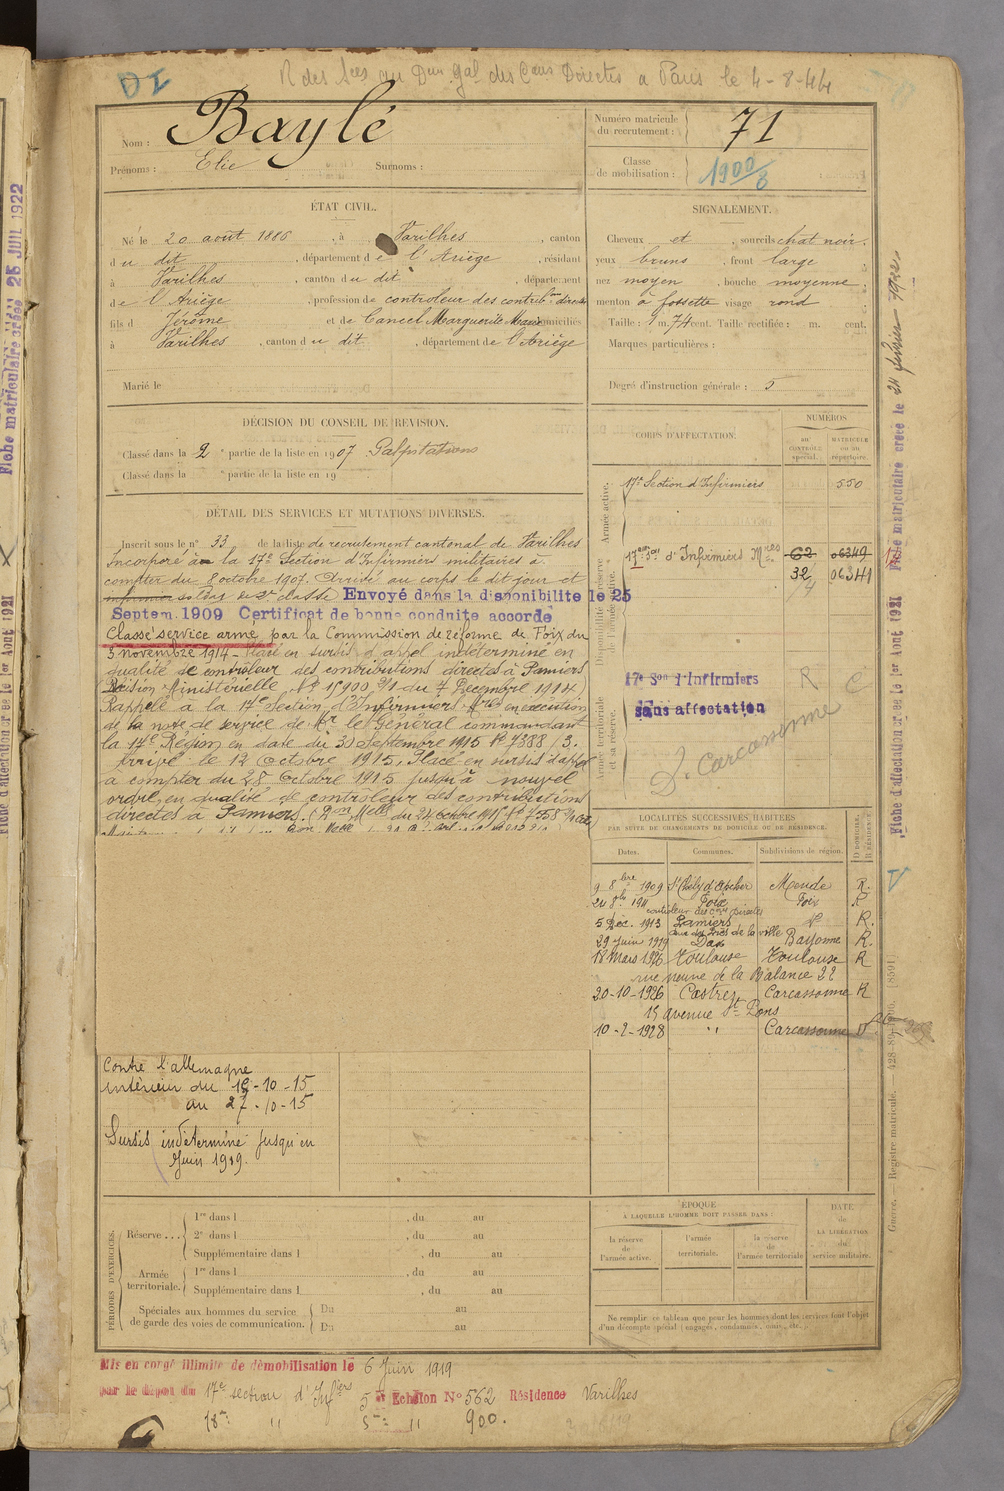 DI
R des Sces au Don Gal des Cons Directes a Paris le 4-8-44
Nom : Baylé
Prénoms : Elie Surnoms :
Numéro matricule du recrutement : 71
Classe de mobilisation : 1900/8
ÉTAT CIVIL.
Né le 20 août 1886, à Varilhes, canton
du dit, département de l'Ariège, résidant
à Varilhes, canton du dit, département
de l'Ariège, profession de controleur des contrib.ons directes
fils d Jérôme et de Cancel Marguerite Marie domiciliés
à Varilhes, canton du dit, département de l'Ariège
Marié le
SIGNALEMENT.
Cheveux et, sourcils chat noir.
yeux bruns, front large
nez moyen, bouche moyenne
menton à fossette visage rond
Taille : 1 m. 74 cent. Taille rectifiée : m. cent.
Marques particulières :
Degré d'instruction générale : 5
DÉCISION DU CONSEIL DE RÉVISION.
Classé dans la 2e partie de la liste en 1907 Palpitations
Classé dans la e partie de la liste en 19
DÉTAIL DES SERVICES ET MUTATIONS DIVERSES.
Inscrit sous le n° 33 de la liste de recrutement cantonal de Varilhes
Incorporé à la 17e Section d'Infirmiers militaires à
compter du 8 octobre 1907. Arrivé au corps le dit jour et
infirmier soldat de 2e classe Envoyé dans la disponibilite le 25
Septem. 1909 Certificat de bonne conduite accordé
Classé service armé par la Commission de réforme de Foix du
3 novembre 1914 - Placé en sursis d'appel indéterminé en
qualité de contrôleur des contributions directes à Pamiers
Décision Ministérielle N° 15900 3/1 du 7 Décembre 1914)
Rappelé à la 17e Section d'Infirmiers Mres en exécution
de la note de service de Mr le Général commandant
la 17e Région en date du 30 Septembre 1915 N° 7388/3.
Arrivé le 12 Octobre 1915. Placé en sursis d'appel
à compter du 28 Octobre 1915 jusqu'à nouvel
ordre, en qualité de controleur des contributions
directes à Pamiers. (Don Melle du 24 octobre 1915 N° 7558
Contre l'allemagne
intérieur du 12-10-15
au 27-10-15
Sursis indéterminé jusqu'en
Juin 1919.
CORPS D'AFFECTATION.
NUMÉROS
AU CONTRÔLE spécial.
MATRICULE ou au répertoire.
Armée active.
17e Section d'Infirmiers 550
Disponibilité et réserve de l'armée active.
17eme Son d'Infirmiers Mres 62 06349
32 06341
Armée territoriale et sa réserve.
17e Son d'Infirmiers
sans affectation
R C
S. Carcassonne
LOCALITÉS SUCCESSIVES HABITÉES
PAR SUITE DE CHANGEMENTS DE DOMICILE OU DE RÉSIDENCE.
Dates. Communes. Subdivisions de région. D DOMICILE. R RÉSIDENCE.
9 8bre 1909 St Chély d'Apcher Mende R.
Foix Foix R
controleur des Cons directes
5 Déc. 1913 Pamiers d° R.
29 juin 1919 Dax Bayonne R.
18 Mars 1926 Toulouse Toulouse R
rue neuve de la Balance 22
20-10-1926 Castres Carcassonne R
15 avenue St Pons
10-2-1928 " Carcassonne
PÉRIODES D'EXERCICES.
Réserve ... 1re dans l , du au
2e dans l , du au
Supplémentaire dans l , du au
Armée territoriale. 1re dans l , du au
Supplémentaire dans l , du au
Spéciales aux hommes du service de garde des voies de communication. Du au
Du au
ÉPOQUE
À LAQUELLE L'HOMME DOIT PASSER DANS :
la réserve de l'armée active.
l'armée territoriale.
la réserve de l'armée territoriale
DATE de LA LIBÉRATION du service militaire.
Ne remplir ce tableau que pour les hommes dont les services font l'objet
d'un décompte spécial (engagés, condamnés, omis, etc.).
Mis en congé illimité de démobilisation le 6 Juin 1919
par le dépot du 17e section d'Infiers 5e Echelon N° 562 Résidence Varilhes
18e " 5e " 900.
Fiche matriculaire créée le 24 février 1922
Fiche d'affectation créée le 1er Aout 1921
V
Guerre. — Registre matricule. — 428-89-1906. [8591]
Fiche matriculaire créée 25 JUIL 1922
X
Fiche d'affectation créée le 1er Aout 1921